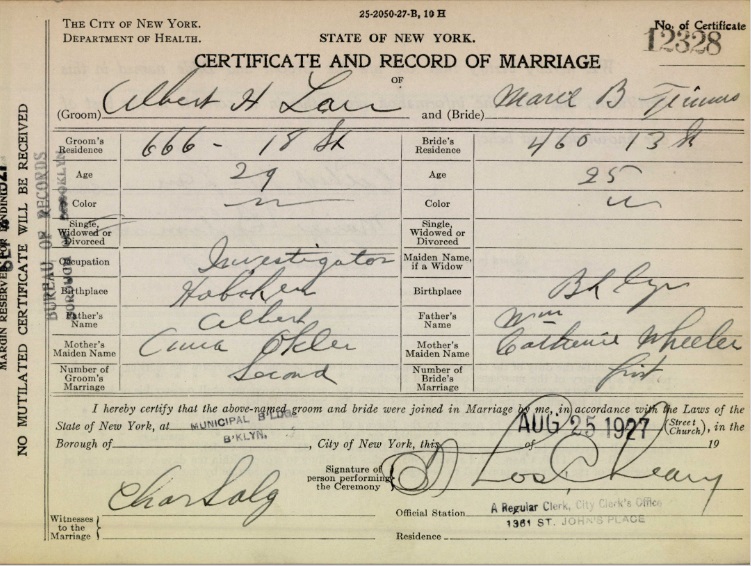 25-2050-27-B, 10 H
THE CITY OF NEW YORK.
DEPARTMENT OF HEALTH.
STATE OF NEW YORK.
No. of Certificate
12328
CERTIFICATE AND RECORD OF MARRIAGE
OF
(Groom) Albert H and (Bride) Marie B
Groom's Residence 666 - 18 St Bride's Residence 460 13 St
Age 29 Age 25
Color Color
Single, Widowed or Divorced Single, Widowed or Divorced
Occupation Investigator Maiden Name, if a Widow
Birthplace Hoboken Birthplace Bklyn
Father's Name Albert Father's Name Wm
Mother's Maiden Name Anna Mother's Maiden Name Catherine Wheeler
Number of Groom's Marriage Second Number of Bride's Marriage first
I hereby certify that the above-named groom and bride were joined in Marriage by me, in accordance with the Laws of the
State of New York, at MUNICIPAL B'LDG. AUG 25 1927 (Street Church), in the
Borough of B'KLYN. , City of New York, this of 19
Signature of person performing the Ceremony
Witnesses to the Marriage
Official Station A Regular Clerk, City Clerk's Office
1361 ST. JOHN'S PLACE
Residence
NO MUTILATED CERTIFICATE WILL BE RECEIVED
MARGIN RESERVED FOR BINDING
BUREAU OF RECORDS
BOROUGH OF BROOKLYN